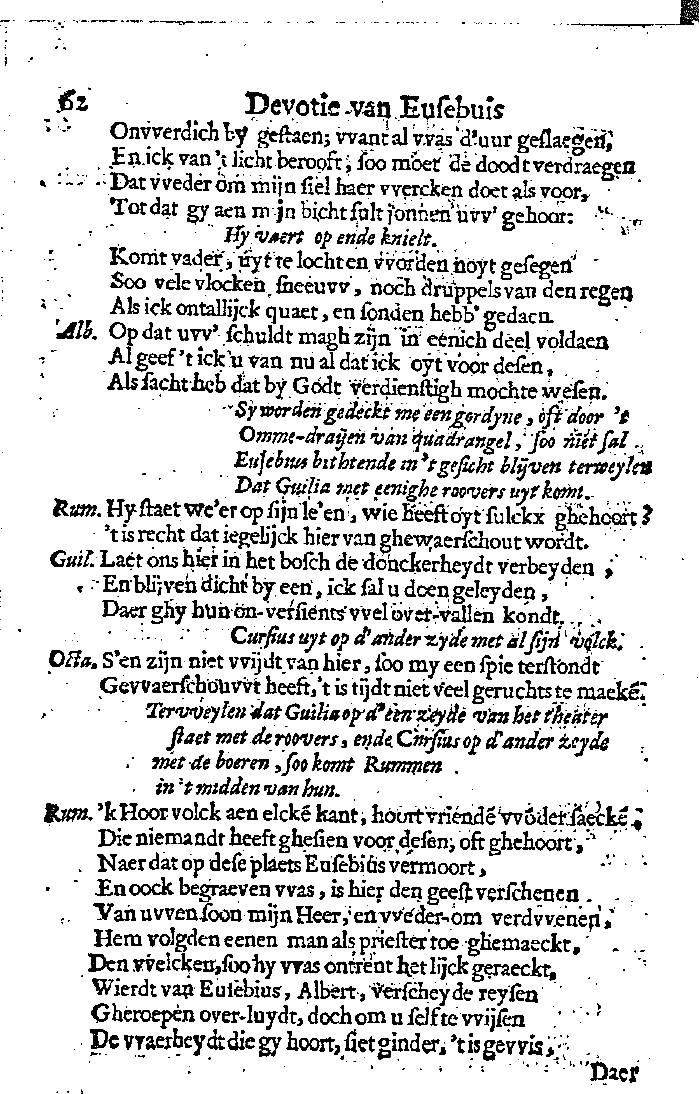 62 Devotie van Eusebuis
Onvverdich by gestaen; vvant al vvas d'uur geslaegen,
En ick van 't licht berooft, soo moet de doodt verdraegen
Dat vveder om mijn siel haer vvercken doet als voor,
Tot dat gy aen mijn bicht sult jonnen uvv' gehoor:
Hy vaert op ende knielt.
Komt vader, uyt te lochten vvorden noyt gesegen
Soo vele vlocken sneeuvv, noch druppels van den regen
Als ick ontallijck quaet, en sonden hebb' gedaen
Alb. Op dat uvv' schuldt magh zijn in eenich deel voldaen
Al geef 't ick u van nu al dat ick oyt voor desen,
Als sacht heb dat by Godt verdienstigh mochte wesen.
Sy worden gedeckt me een gordyne, oft door 't
Omme-draijen van quadrangel, soo niet sal
Eusebius bichtende in 't gesicht blijven terweylen
Dat Guilia met eenighe roovers uyt komt.
Rum. Hy staet we'er op sijn le'en, wie heeft oyt sulckx ghehoort?
't is recht dat iegelijck hier van ghewaerschout wordt.
Guil. Laet ons hier in het bosch de donckerheydt verbeyden,
En blijven dicht by een, ick sal u doen geleyden,
Daer ghy hun on-versients vvel over-vallen kondt.
Cursius uyt op d'ander zyde met al sijn volck.
Octa. S'en zijn niet vvijdt van hier, soo my een spie terstondt
Gevvaerschouvvt heeft, 't is tijdt niet veel geruchts te maekē.
Tervveylen dat Guilia op d'een zeyde van het theater
staet met de roovers, ende Cursius op d'ander zeyde
met de boeren, soo komt Rummen
in 't midden van hun.
Rum. 'k Hoor volck aen elckē kant, hoort vriendē vvōder saeckē,
Die niemandt heeft ghesien voor desen, oft ghehoort,
Naer dat op dese plaets Eusebius vermoort,
En oock begraeven vvas, is hier den geest verschenen
Van uvven soon mijn Heer, en vveder-om verdvvenen,
Hem volgden eenen man als priester toe ghemaeckt,
Den vvelcken, soo hy vvas ontrent het lijck geraeckt,
Wierdt van Eusebius, Albert, verscheyde reysen
Gheroepen over-luydt, doch om u self te vvijsen
De vvaerheydt die gy hoort, siet ginder, 't is gevvis,
Daer